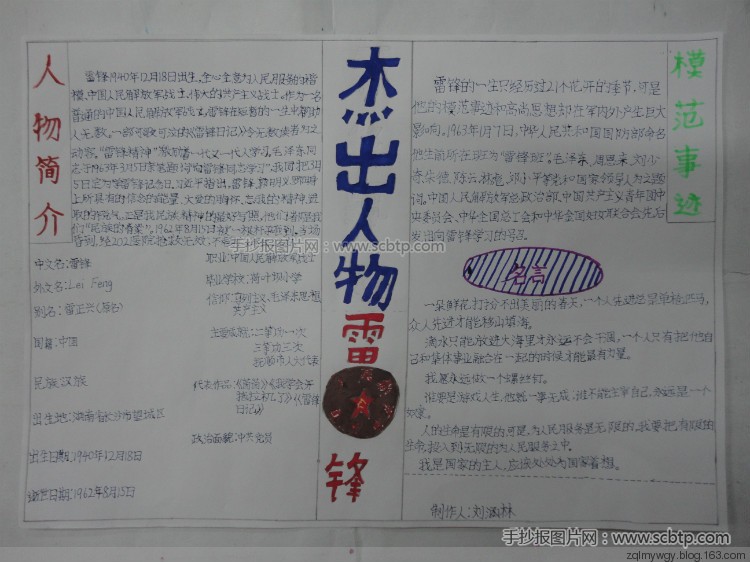 人物简介
雷锋1940年12月18日出生,全心全意为人民服务的楷
模,中国人民解放军战士,伟大的共产主义战士。作为一名
普通的中国人民解放军战士,雷锋在短暂的一生中帮助
人无数。一部可歌可泣的《雷锋日记》令无数读者为之
动容。"雷锋精神"激励着一代又一代人学习。毛泽东同
志于1963年3月5日亲笔题词"向雷锋同志学习",我国把3月
5日定为学雷锋纪念日。
上所具有的信念的能量、大爱的胸怀、忘我的精神、进
取的
们"民族的脊梁"。1962年8月15日
中文名:雷锋
外文名:Lei Feng
别名:雷正兴(原名)
国籍:中国
民族:汉族
出生地:湖南省长沙市望城区
出生日期:1940年12月18日
逝世日期:1962年8月15日
职业:中国人民解放军战士
毕业学校:荷叶坝小学
信仰:马列主义、毛泽东思想
共产主义
主要成就:二等功一次
三等功三次
抚顺市人大代表
代表作品:《
日记》
政治面貌:中共党员
杰出人物雷锋
模范事迹
雷锋的一生只经历过21个花开的季节,可是
他的模范事迹和高尚思想却在军内外产生巨大
影响。1963年1月7日,中华人民共和国国防部命名
他生前所在班为"雷锋班"。毛泽东、周恩来、刘少
奇、朱德、陈云、林彪、邓小平等党和国家领导人为之题
词。中国人民解放军总政治部、中国共产主义青年团中
央委员会、中华全国总工会和中华全国妇女联合会先后
发出向雷锋学习的号召。
名言
一朵鲜花打扮不出美丽的春天,一个人先进总是单枪匹马,
众人先进才能移山填海。
滴水只有放进大海里才永远不会干涸,一个人只有把他自
己和集体事业融合在一起的时候才能最有力量。
我愿永远做一个螺丝钉。
谁要是游戏人生,他就一事无成;谁不能主宰自己,永远是一个
奴隶。
人的生命是有限的,可是,为人民服务是无限的,我要把有限的
生命,投入到无限的为人民服务之中。
我是国家的主人,应该处处为国家着想。
制作人:刘涵林
手抄报图片网:www.scbtp.com
手抄报图片网:www.scbtp.com
zqlmywgy.blog.163.com